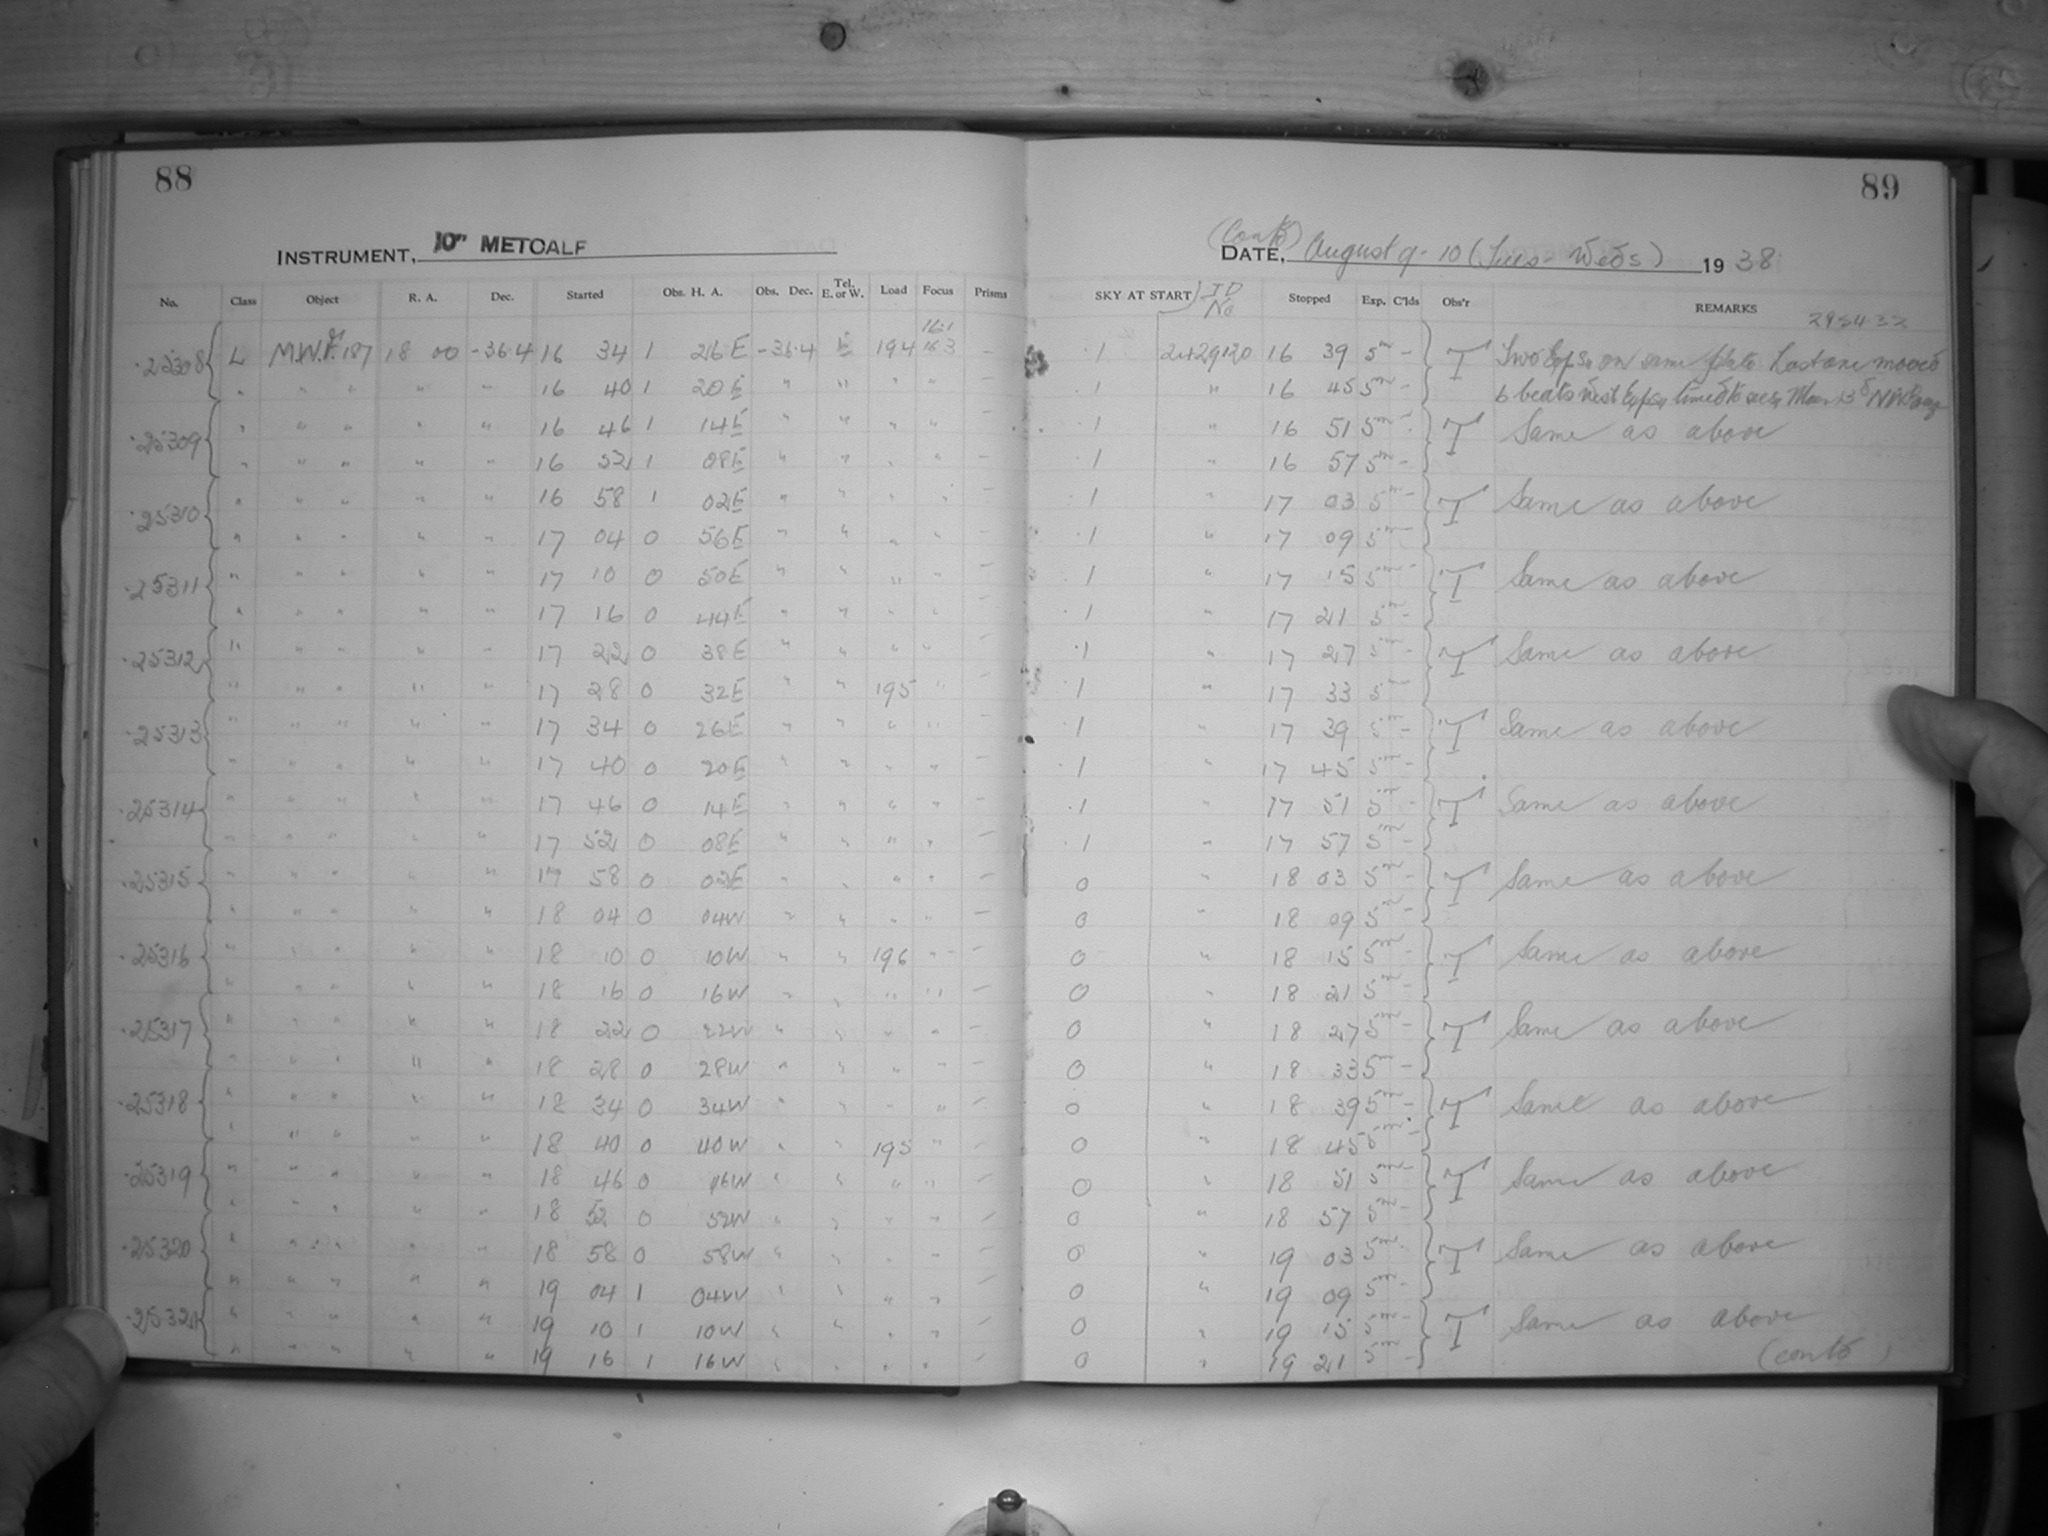 88
89
INSTRUMENT, 10" METCALF
(Contd) DATE, August 9-10 (Tues-Weds) 1938
No. Class Object R. A. Dec. Started Obs. H. A. Obs. Dec. Tel. E. or W. Load Focus Prisms SKY AT START JD No Stopped Exp. C'lds Obs'r REMARKS
16.1
25308 L M.W.F. 187 18 00 -36.4 16 34 1 26E -36.4 E 194 16.3 - 1 2429120 16 39 5m - T Two Exps. on same plate Last one moved
" " " " " 16 40 1 20E " " " " - 1 " 16 45 5m - 6 beats West
25309 " " " " " 16 46 1 14E " " " " - 1 " 16 51 5m - T Same as above
" " " " " 16 52 1 08E " " " " - 1 " 16 57 5m -
25310 " " " " " 16 58 1 02E " " " " - 1 " 17 03 5m - T Same as above
" " " " " 17 04 0 56E " " " " - 1 " 17 09 5m -
25311 " " " " " 17 10 0 50E " " " " - 1 " 17 15 5m - T Same as above
" " " " " 17 16 0 44E " " " " - 1 " 17 21 5m -
25312 " " " " " 17 22 0 38E " " " " - 1 " 17 27 5m - T Same as above
" " " " " 17 28 0 32E " " 195 " - 1 " 17 33 5m -
25313 " " " " " 17 34 0 26E " " " " - 1 " 17 39 5m - T Same as above
" " " " " 17 40 0 20E " " " " - 1 " 17 45 5m -
25314 " " " " " 17 46 0 14E " " " " - 1 " 17 51 5m - T Same as above
" " " " " 17 52 0 08E " " " " - 1 " 17 57 5m -
25315 " " " " " 17 58 0 02E " " " " - 0 " 18 03 5m - T Same as above
" " " " " 18 04 0 04W " " " " - 0 " 18 09 5m -
25316 " " " " " 18 10 0 10W " " 196 " - 0 " 18 15 5m - T Same as above
" " " " " 18 16 0 16W " " " " - 0 " 18 21 5m -
25317 " " " " " 18 22 0 22W " " " " - 0 " 18 27 5m - T Same as above
" " " " " 18 28 0 28W " " " " - 0 " 18 33 5m -
25318 " " " " " 18 34 0 34W " " " " - 0 " 18 39 5m - T Same as above
" " " " " 18 40 0 40W " " 195 " - 0 " 18 45 5m -
25319 " " " " " 18 46 0 46W " " " " - 0 " 18 51 5m - T Same as above
" " " " " 18 52 0 52W " " " " - 0 " 18 57 5m -
25320 " " " " " 18 58 0 58W " " " " - 0 " 19 03 5m - T Same as above
" " " " " 19 04 1 04W " " " " - 0 " 19 09 5m -
25321 " " " " " 19 10 1 10W " " " " - 0 " 19 15 5m - T Same as above
" " " " " 19 16 1 16W " " " " 0 " 19 21 5m - (contd)